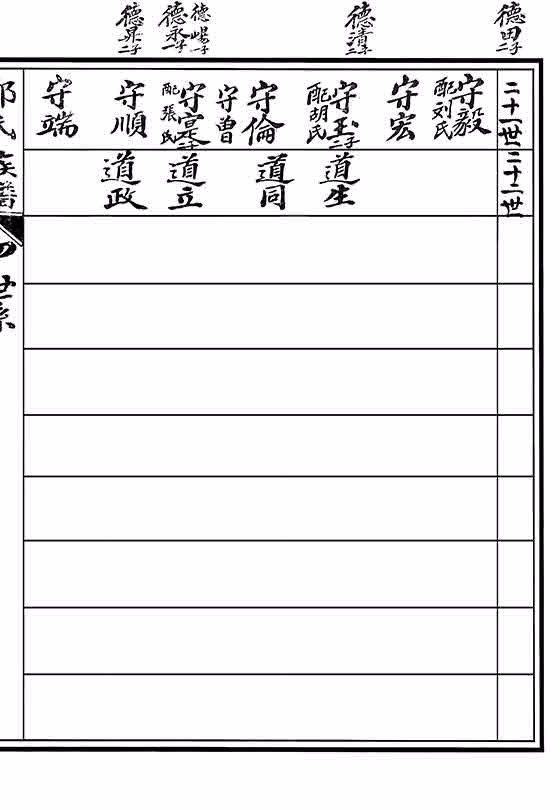 德田二子
德清二子
德永一子
德昇二子
二十一世
守毅
配刘氏
守宏
守玉二子
配胡氏
守倫
守曽
守寔二子
配張氏
守順
守端
二十二世
道生
道同
道立
道政
氏族譜
世系